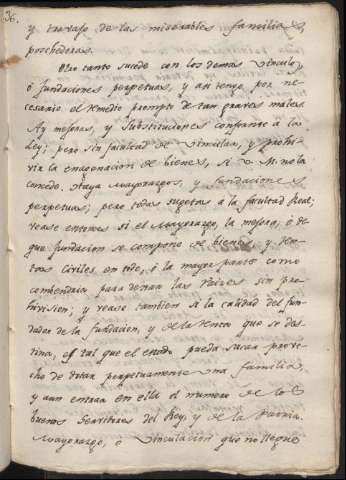 36.
y trabajo de las miserables familias
pecheras.
Otro tanto sucede con los demas vinculos,
ó fundaciones perpetuas, y asi tengo por ne-
cesario el remedio prompto de tan graves males
Ay mejoras, y Substituciones conforme á la
Ley; pero sin facultad de vincular, y prohi-
vir la enagenacion de bienes, si V. M. no la
concede. Haya Mayorazgos, y fundaciones
perpetuas; pero todas sugetas á la facultad Real;
vease entonces si el Mayorazgo, la mejora, ó de
que fundacion se compone de bienes, y ren-
tas civiles en todo, ó la mayor parte como
combendria para dexar las raices sin pro-
hivision; y vease tambien si la calidad del fun-
dador de la fundacion, y de la renta que se des-
tina, es tal que el estado pueda sacar prove-
cho de dotar perpetuamente una familia,
y aun entrar en ella el numero de los
buenos Servidores del Rey, y de la Patria.
Mayorazgo, o vinculacion que no llegue